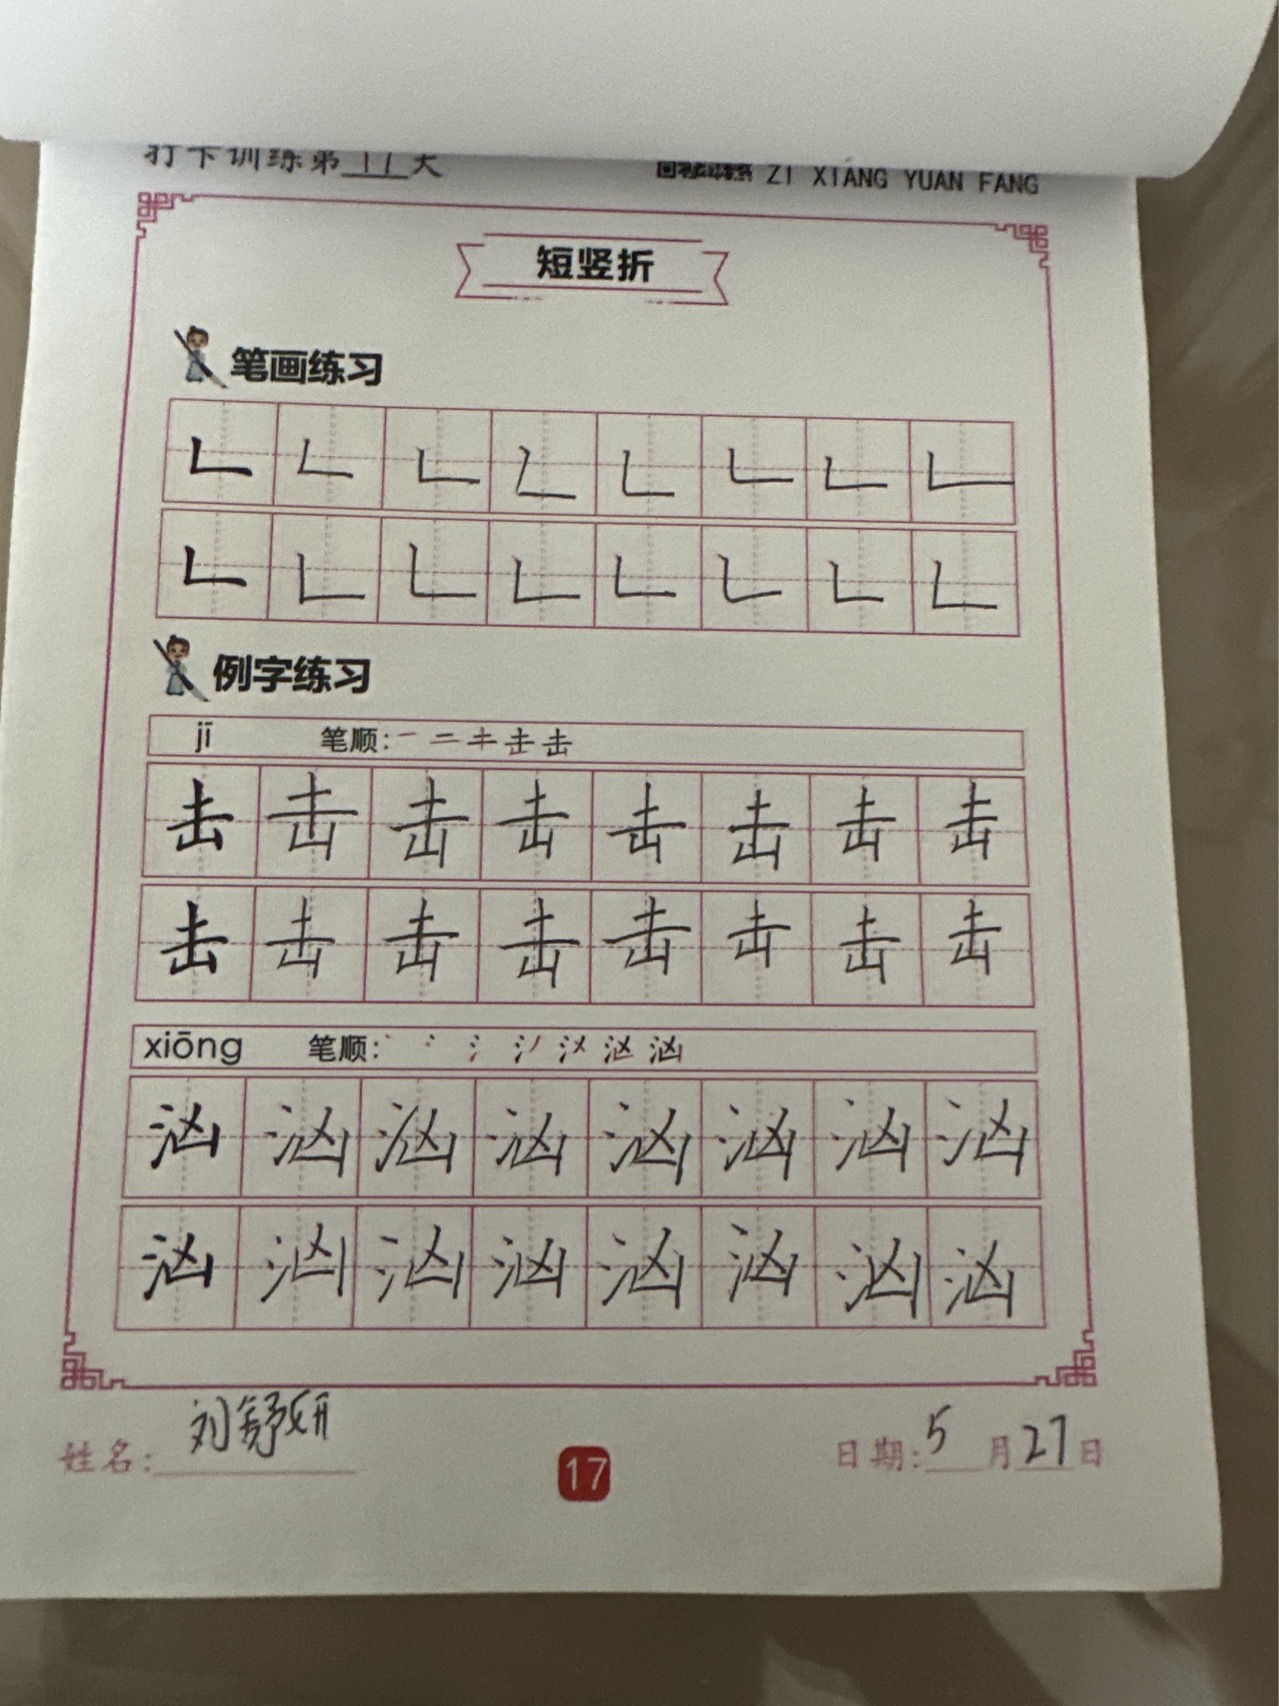 打卡训练第17天
ZI XIANG YUAN FANG
短竖折
笔画练习
𠃊 𠃊 𠃊 𠃊 𠃊 𠃊 𠃊 𠃊
𠃊 𠃊 𠃊 𠃊 𠃊 𠃊 𠃊 𠃊
例字练习
jī 笔顺:
击 击 击 击 击 击 击 击
击 击 击 击 击 击 击 击
xiōng 笔顺:
汹 汹 汹 汹 汹 汹 汹 汹
汹 汹 汹 汹 汹 汹 汹 汹
姓名: 刘舒妍
17
日期: 5月27日